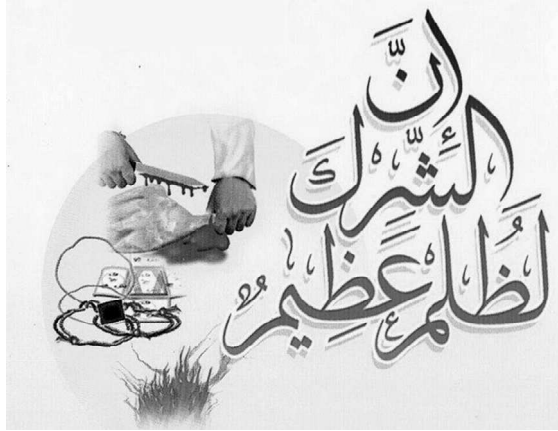 انَّ
الشِّركَ
لَظُلمٌ عَظِيمٌ